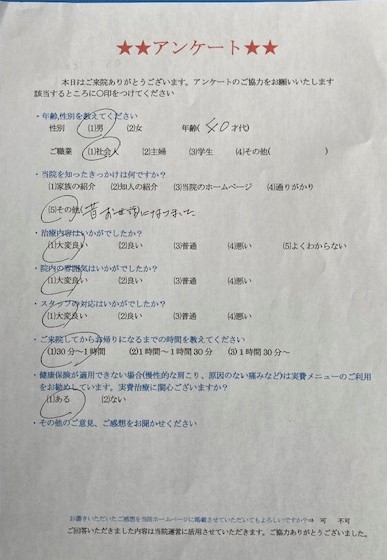 ★★アンケート★★
本日はご来院ありがとうございます。アンケートのご協力をお願いいたします
該当するところに〇印をつけてください
・年齢,性別を教えてください
性別 (1)男 (2)女 年齢( 40才代)
ご職業 (1)社会人 (2)主婦 (3)学生 (4)その他( )
・当院を知ったきっかけは何ですか?
(1)家族の紹介 (2)知人の紹介 (3)当院のホームページ (4)通りがかり
(5)その他(昔お世話になりました
・治療内容はいかがでしたか?
(1)大変良い (2)良い (3)普通 (4)悪い (5)よくわからない
・院内の雰囲気はいかがでしたか?
(1)大変良い (2)良い (3)普通 (4)悪い
・スタッフの対応はいかがでしたか?
(1)大変良い (2)良い (3)普通 (4)悪い
・ご来院してからお帰りになるまでの時間を教えてください
(1)30分～1時間 (2)1時間～1時間30分 (3)1時間30分～
・健康保険が適用できない場合(慢性的な肩こり、原因のない痛みなど)は実費メニューのご利用
をお勧めしています。実費治療に関心ございますか?
(1)ある (2)ない
・その他のご意見、ご感想をお聞かせください
お書きいただいたご感想を当院ホームページに掲載させていただいてもよろしいですか?⇒ 可 不可
ご回答いただきました内容は当院運営に活用させていただきます。ご協力ありがとうございました。